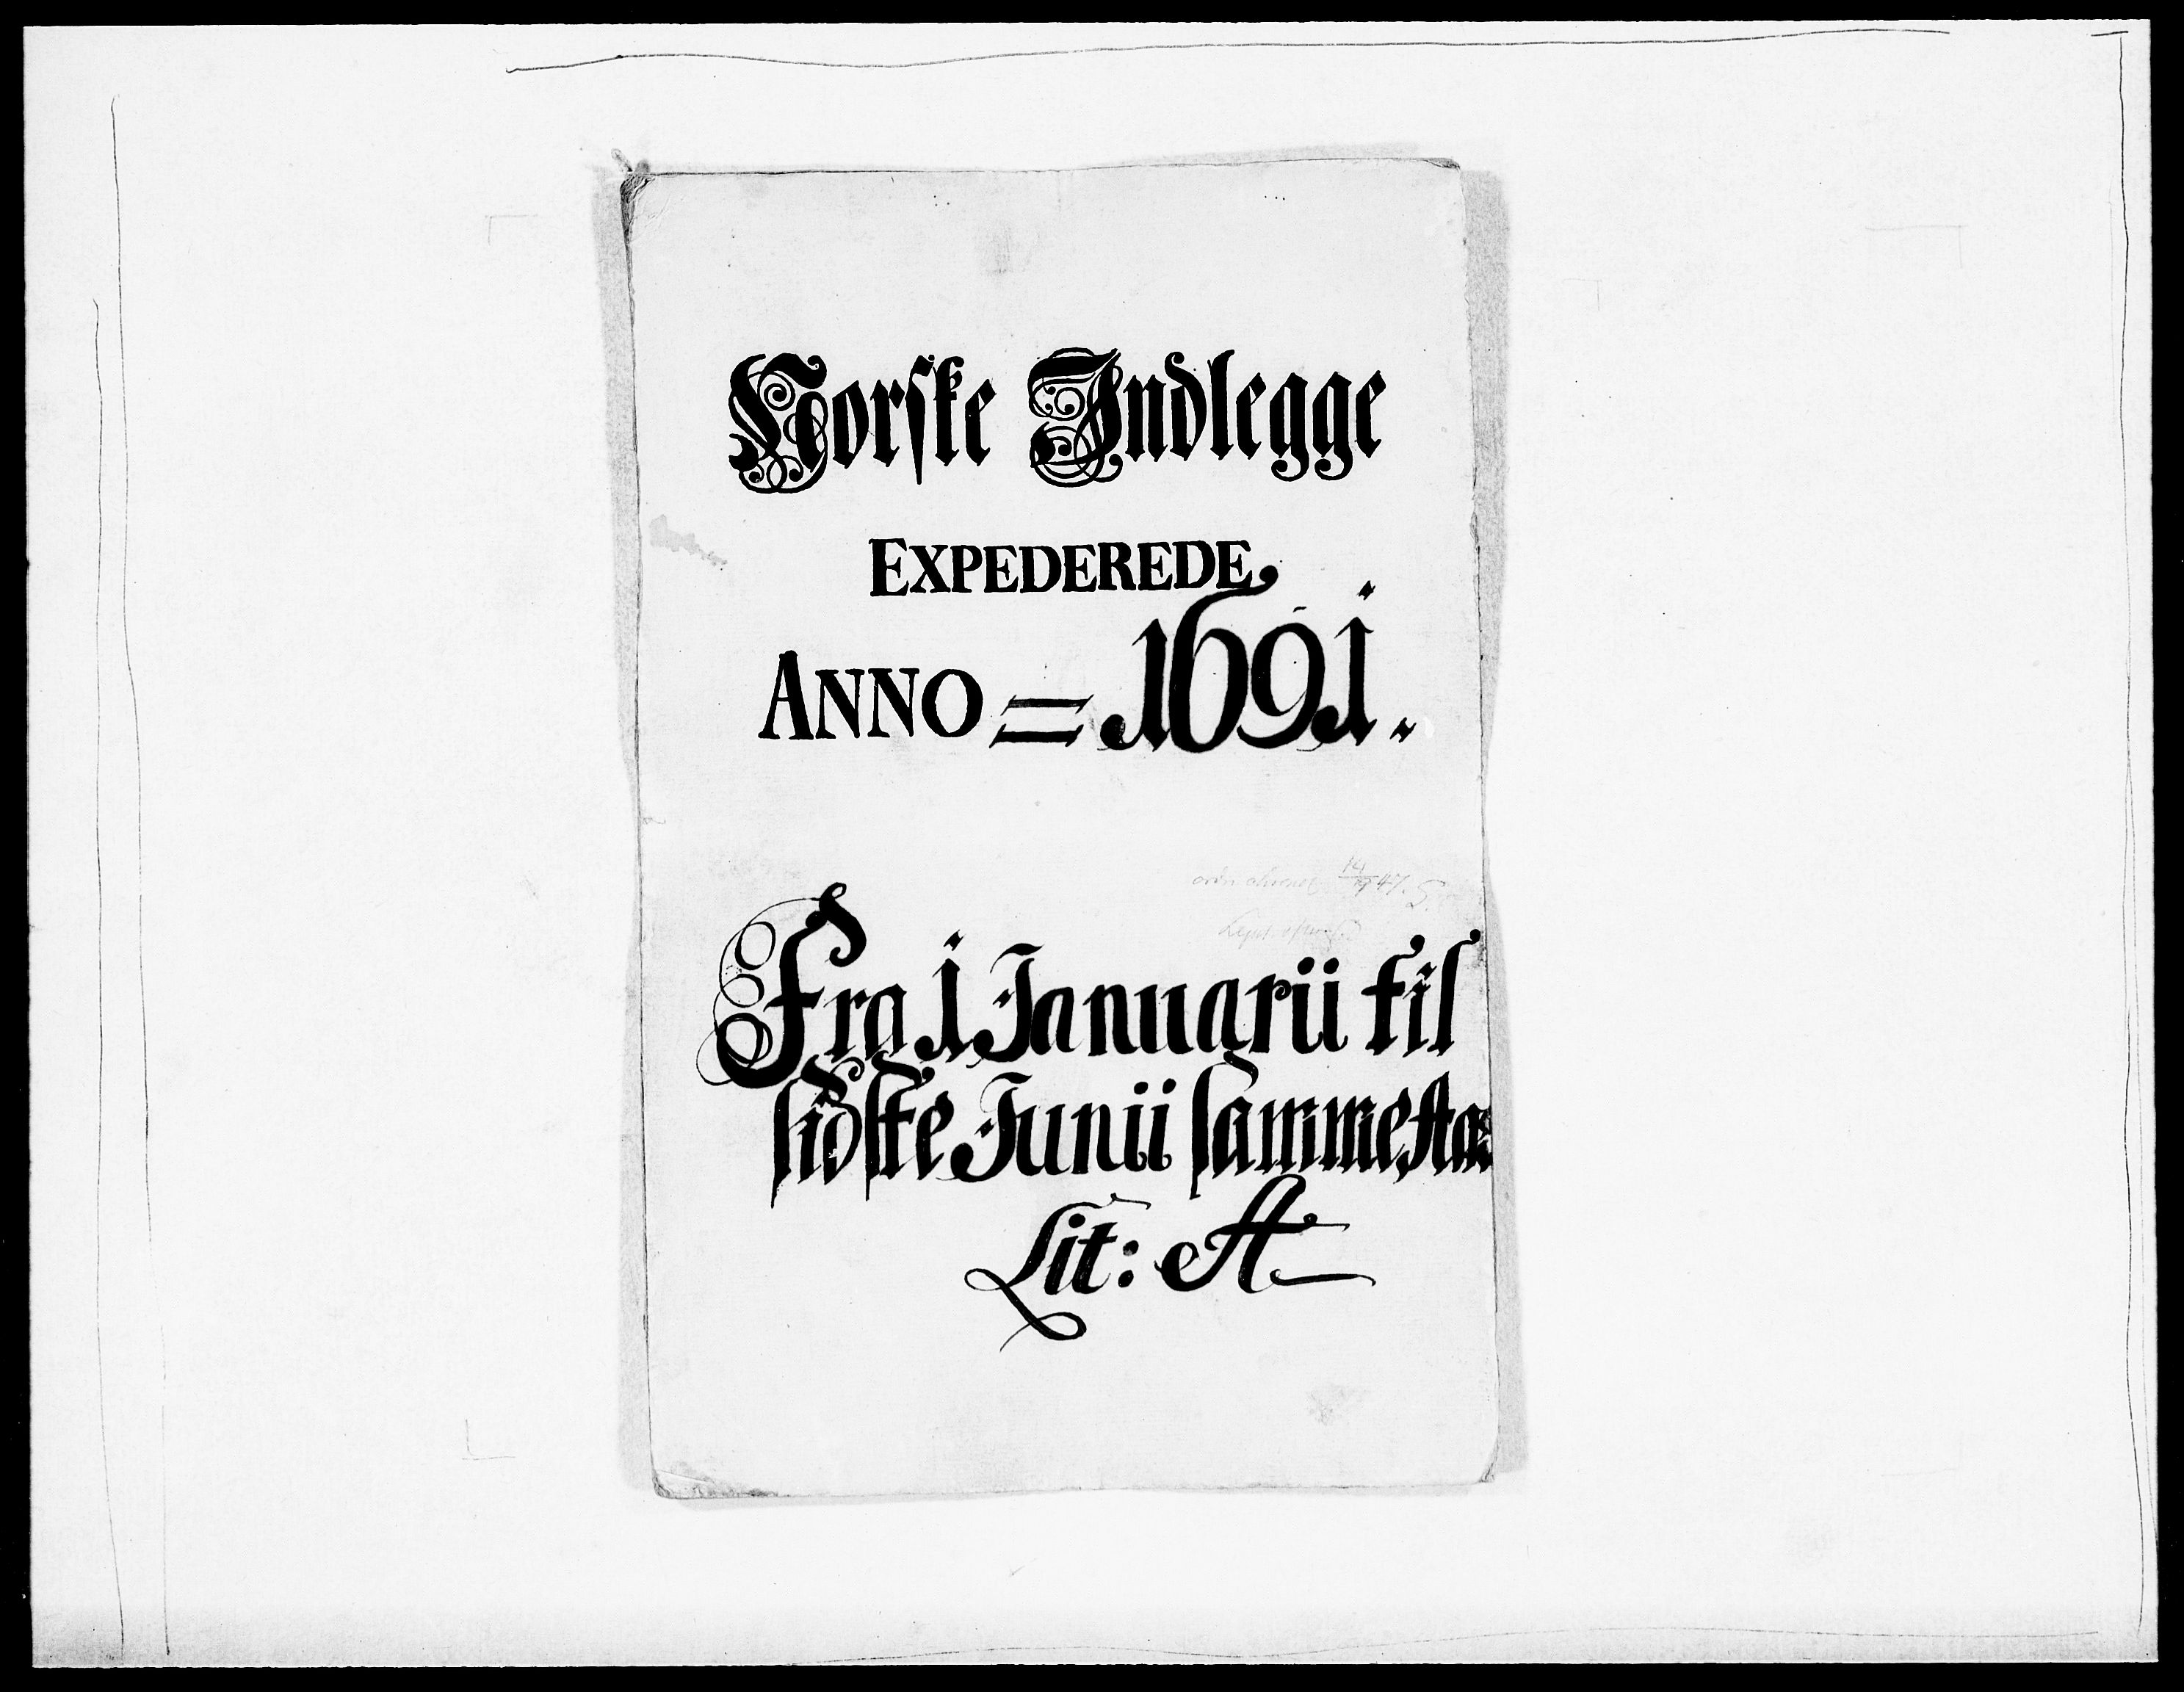 Norske Indlegge
EXPEDEREDE
ANNO = 1691.
14/7 47. S.
Fra 1 Januarii til
sidste Junii samme
Lit: A